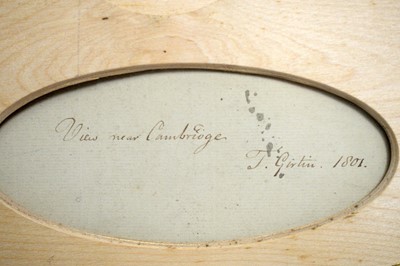 View near Cambridge
T. Girtin. 1801.